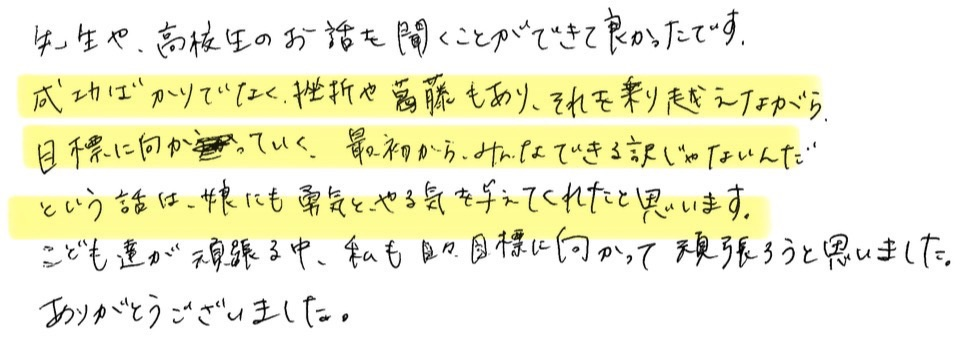 先生や、高校生のお話を聞くことができて良かったです。
成功ばかりでなく、挫折や葛藤もあり、それを乗り越えながら、
目標に向かっていく、最初から、みんなできる訳じゃないんだ
という話は、娘にも勇気と、やる気を与えてくれたと思います。
こども達が頑張る中、私も日々目標に向かって頑張ろうと思いました。
ありがとうございました。